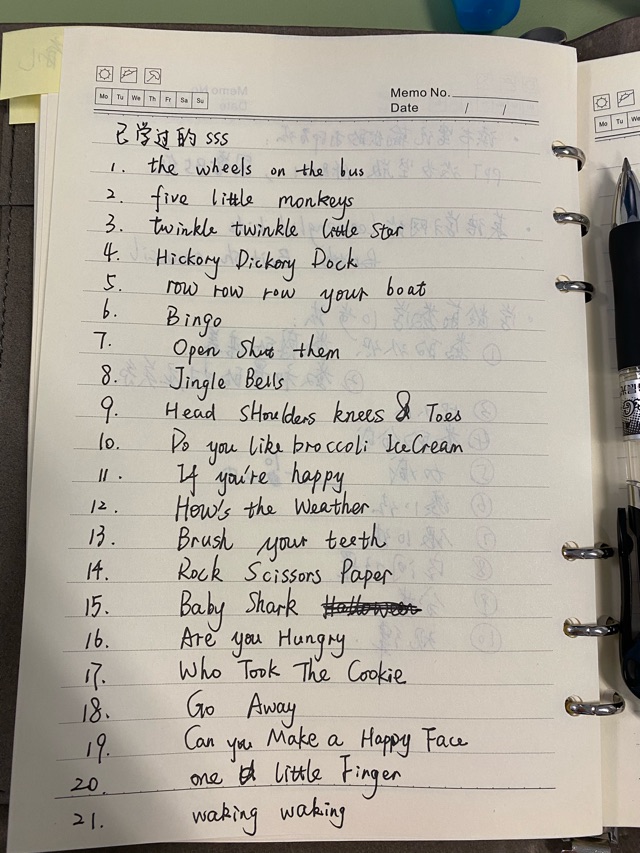 Memo No.
Mo Tu We Th Fr Sa Su
Date / /
已学过的 sss
1. the wheels on the bus
2. five little monkeys
3. twinkle twinkle little star
4. Hickory Dickory Dock
5. row row row your boat
6. Bingo
7. Open Shut them
8. Jingle Bells
9. Head SHoulders knees & Toes
10. Do you like broccoli IceCream
11. If you're happy
12. How's the Weather
13. Brush your teeth
14. Rock Scissors Paper
15. Baby Shark
16. Are you Hungry
17. Who Took The Cookie
18. Go Away
19. Can you Make a Happy Face
20. one little Finger
21. waking waking
Mo Tu We